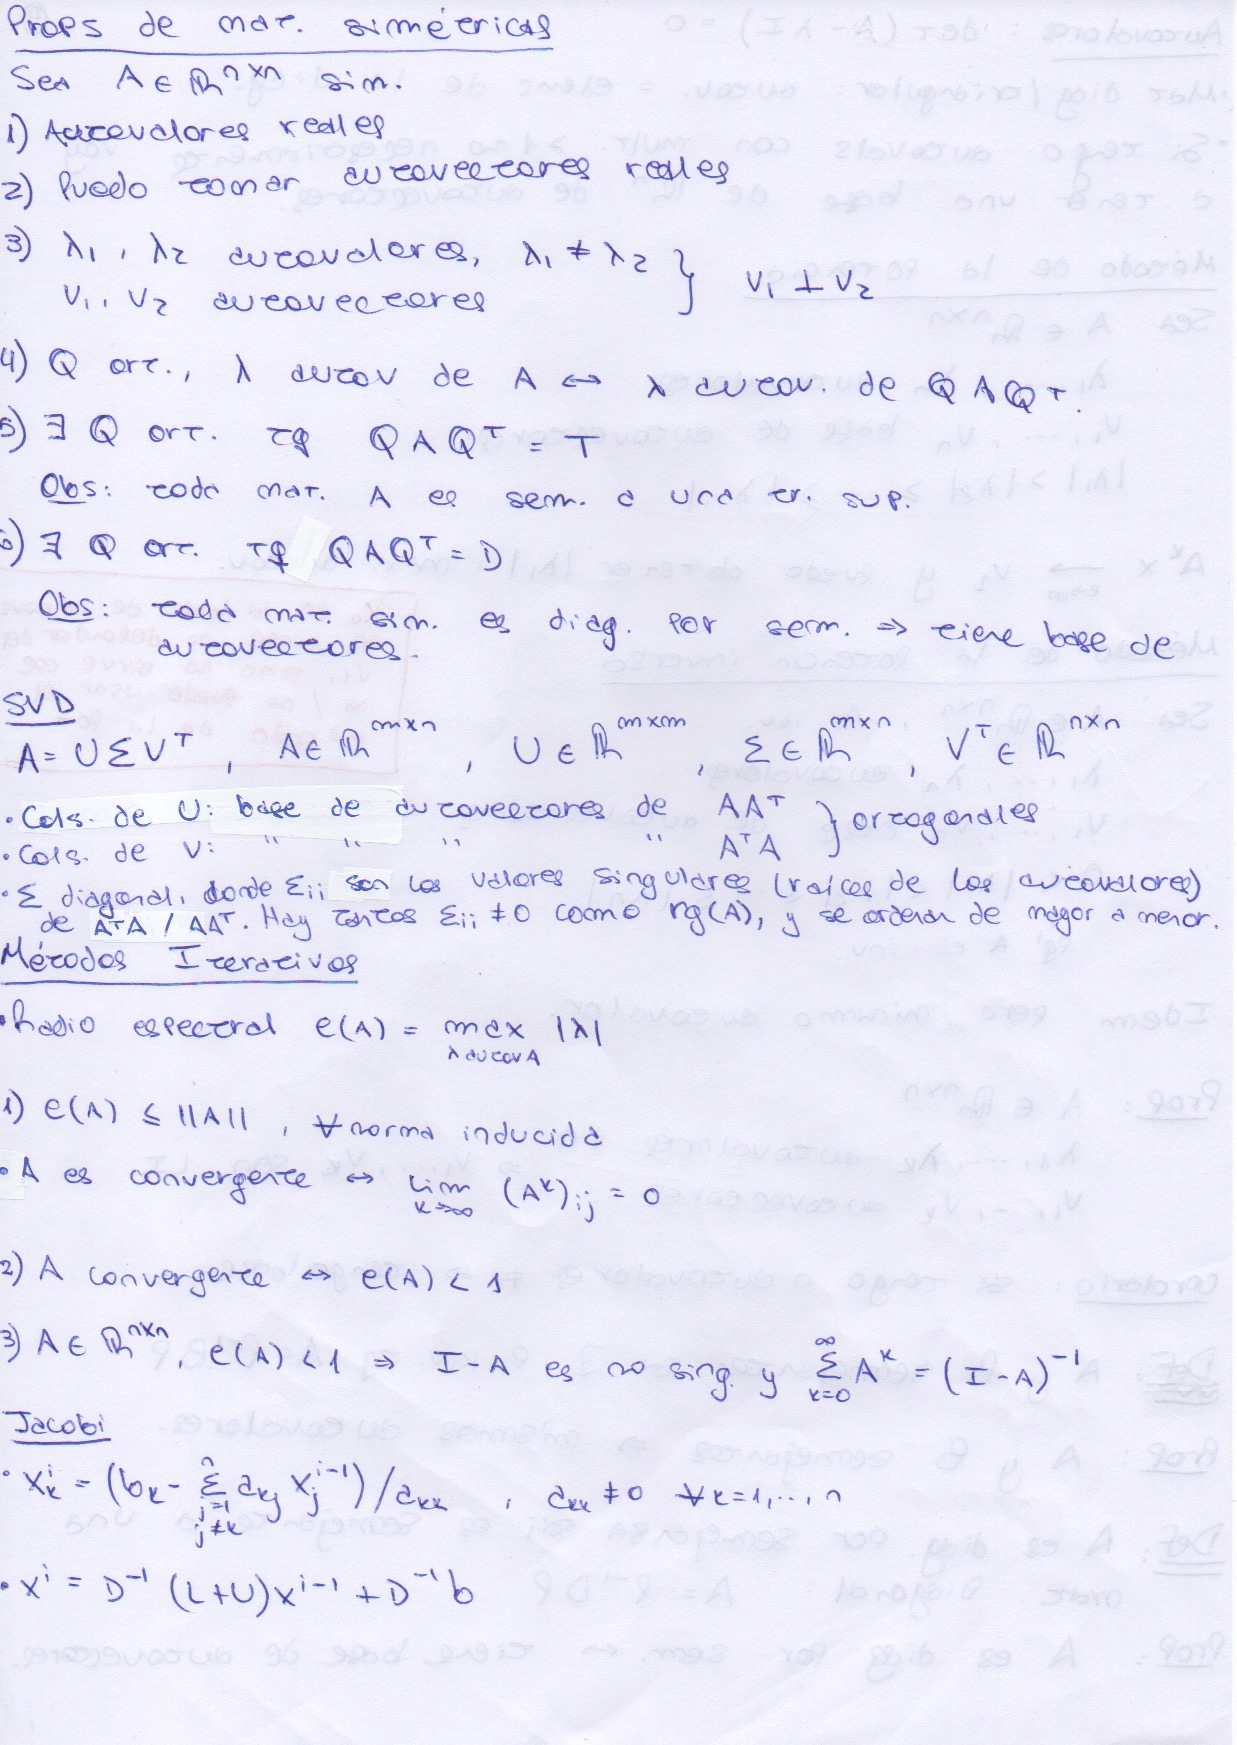 Props de mat. simétricas
Sea A ∈ ℝⁿˣⁿ sim.
1) Autovalores reales
2) Puedo tomar autovectores reales
3) λ₁, λ₂ autovalores, λ₁ ≠ λ₂ } v₁ ⊥ v₂
v₁, v₂ autovectores
4) Q ort., λ autov de A ↔ λ autov. de QAQᵀ.
5) ∃ Q ort. tq QAQᵀ = T
Obs: toda mat. A es sem. a una tr. sup.
6) ∃ Q ort. tq QAQᵀ = D
Obs: toda mat. sim. es diag. por sem. ⇒ tiene base de
autovectores.
SVD
A = UΣVᵀ, A ∈ ℝᵐˣⁿ, U ∈ ℝᵐˣᵐ, Σ ∈ ℝᵐˣⁿ, Vᵀ ∈ ℝⁿˣⁿ
• Cols. de U: base de autovectores de AAᵀ } ortogonales
• Cols. de V: " " " " AᵀA
• Σ diagonal, donde Σᵢᵢ son los valores singulares (raíces de los autovalores)
de AᵀA / AAᵀ. Hay tantos Σᵢᵢ ≠ 0 como rg(A), y se ordenan de mayor a menor.
Métodos Iterativos
• Radio espectral ρ(A) = max |λ|
λ autov A
1) ρ(A) ≤ ||A||, ∀ norma inducida
• A es convergente ↔ lim (Aᵏ)ᵢⱼ = 0
k→∞
2) A convergente ↔ ρ(A) < 1
3) A ∈ ℝⁿˣⁿ, ρ(A) < 1 ⇒ I-A es no sing. y Σ_{k=0}^{∞} Aᵏ = (I-A)⁻¹
Jacobi
• x_k^i = (b_k - Σ_{j=1, j≠k}^{n} a_kj x_j^{i-1}) / a_kk, a_kk ≠ 0 ∀k=1,..,n
• xⁱ = D⁻¹ (L+U)xⁱ⁻¹ + D⁻¹b